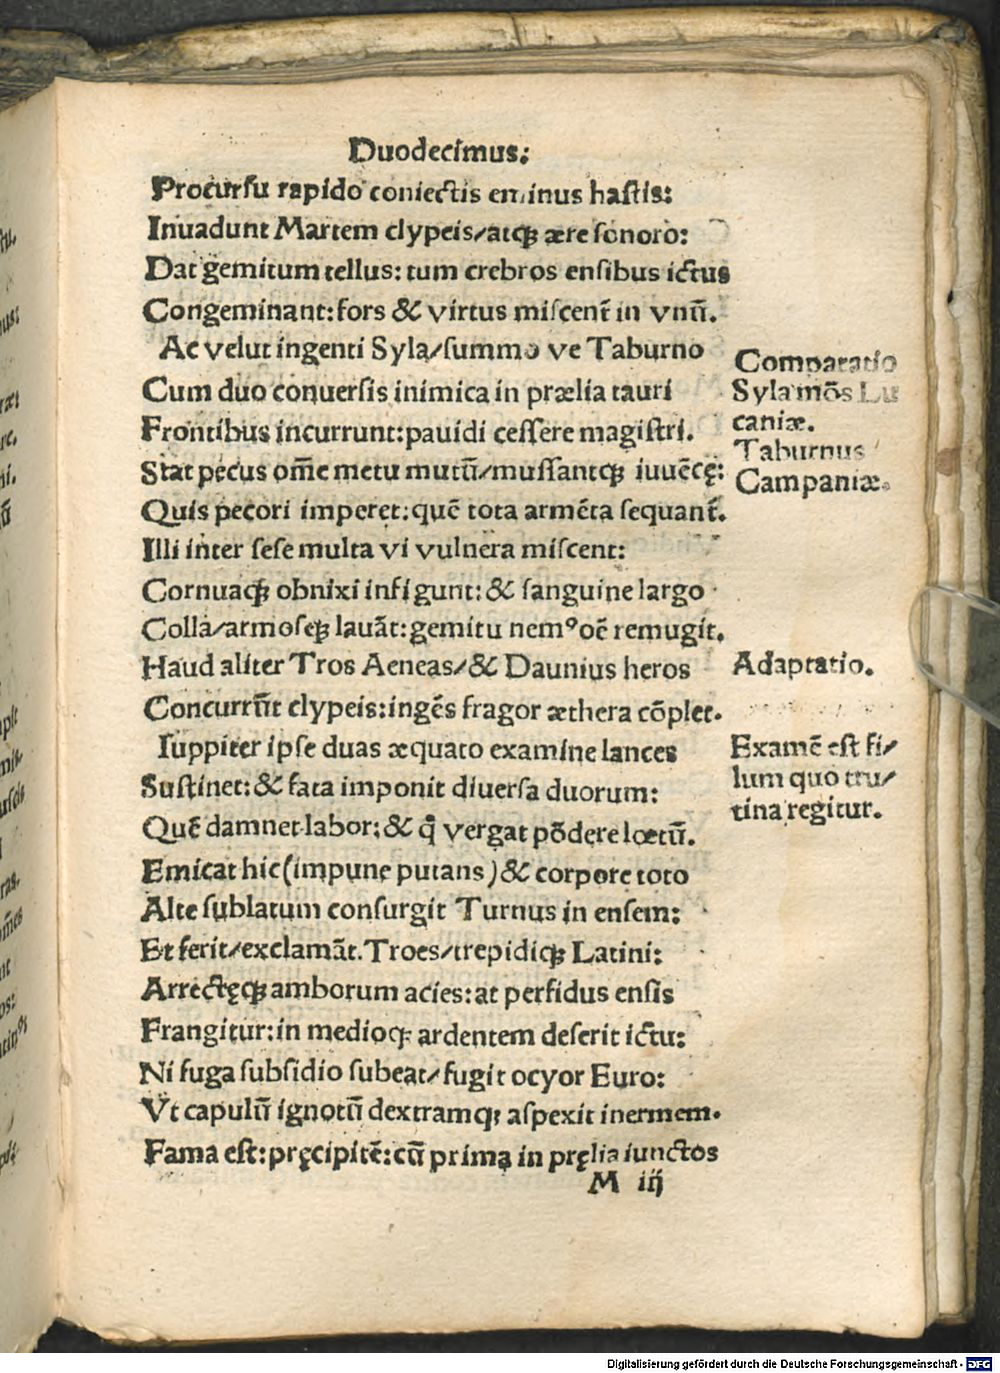 Duodecimus:
Procursu rapido coniectis eminus hastis:
Inuadunt Martem clypeis/atqꝫ ære sonoro:
Dat gemitum tellus: tum crebros ensibus ictus
Congeminant: fors & virtus miscent̃ in vnũ.
Ac velut ingenti Syla/summo ve Taburno
Cum duo conuersis inimica in prælia tauri
Frontibus incurrunt: pauidi cessere magistri.
Stat pecus om̃e metu mutũ/mussantqꝫ iuuẽcę:
Quis pecori imperet: quẽ tota armẽta sequant̃.
Illi inter sese multa vi vulnera miscent:
Cornuaqꝫ obnixi infigunt: & sanguine largo
Colla/armosqꝫ lauãt: gemitu nemꝰ oẽ remugit.
Haud aliter Tros Aeneas/& Daunius heros
Concurrũt clypeis: ingẽs fragor æthera cõplet.
Iuppiter ipse duas æquato examine lances
Sustinet: & fata imponit diuersa duorum:
Quẽ damnet labor: & q̊ vergat põdere lœtũ.
Emicat hic (impune putans) & corpore toto
Alte sublatum consurgit Turnus in ensem:
Et ferit/exclamãt. Troes/trepidiqꝫ Latini:
Arrectęqꝫ amborum acies: at perfidus ensis
Frangitur: in medioqꝫ ardentem deserit ictu:
Ni fuga subsidio subeat/fugit ocyor Euro:
Vt capulũ ignotũ dextramqꝫ aspexit inermem.
Fama est: pręcipitẽ: cũ prima in pręlia iunctos
M iij
Comparatio
Syla mõs Lu
caniæ.
Taburnus
Campaniæ.
Adaptatio.
Examẽ est fi/
lum quo tru/
tina regitur.
Digitalisierung gefördert durch die Deutsche Forschungsgemeinschaft - DFG